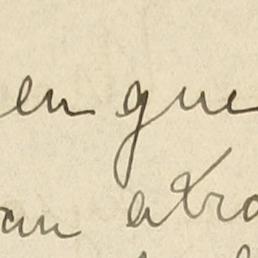 en que
an atra